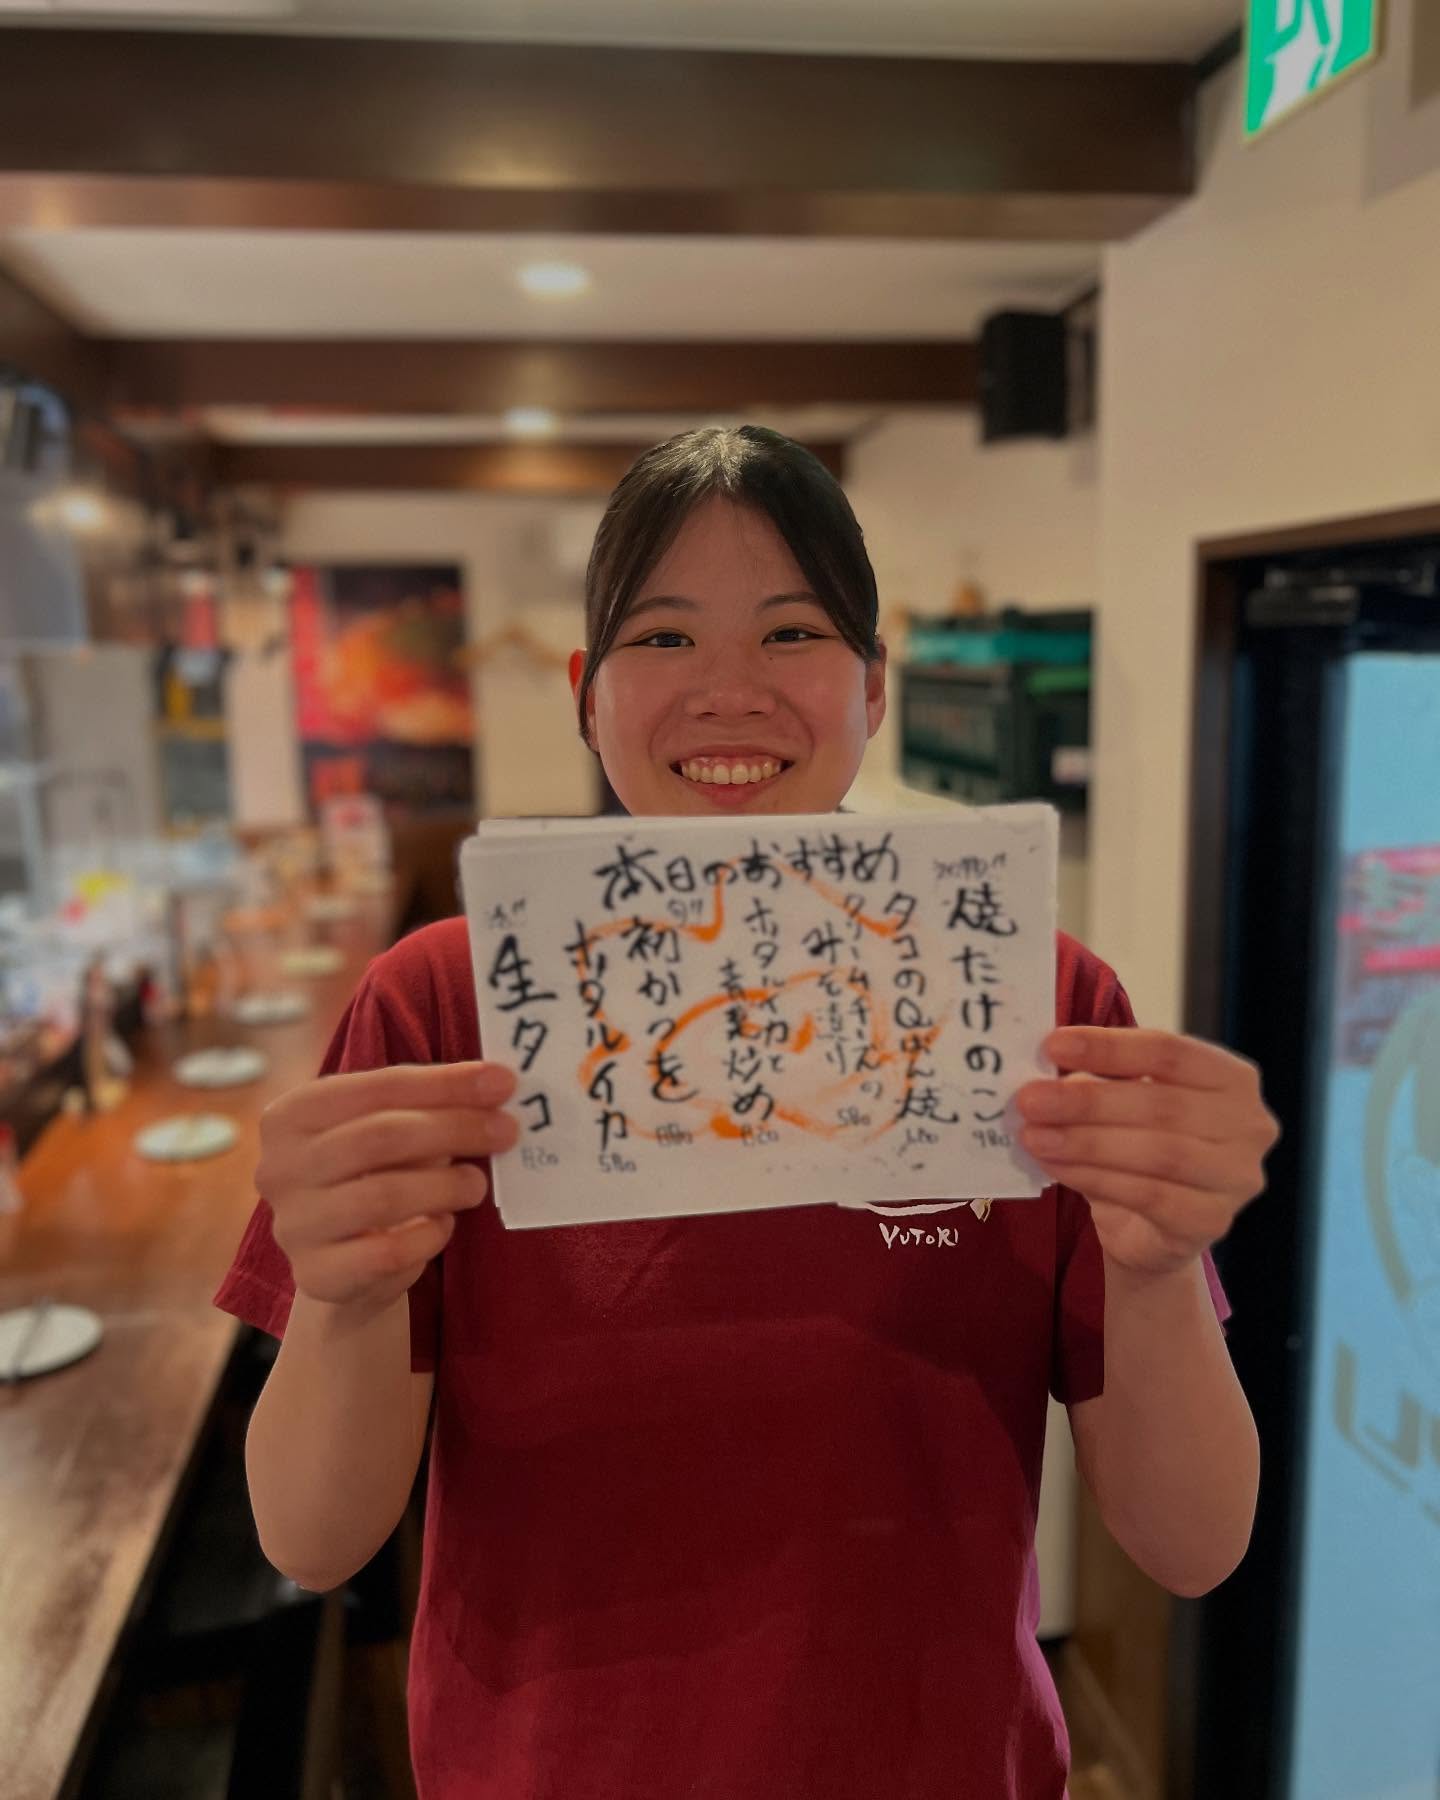 本日のおすすめ
焼たけのこ
980
タコのQばん焼
クリームチーズの
みそ漬り
580
ホタルイカと
青菜炒め
820
旬!!
初かつを
880
ホタルイカ
580
生タコ
820
YUTORI